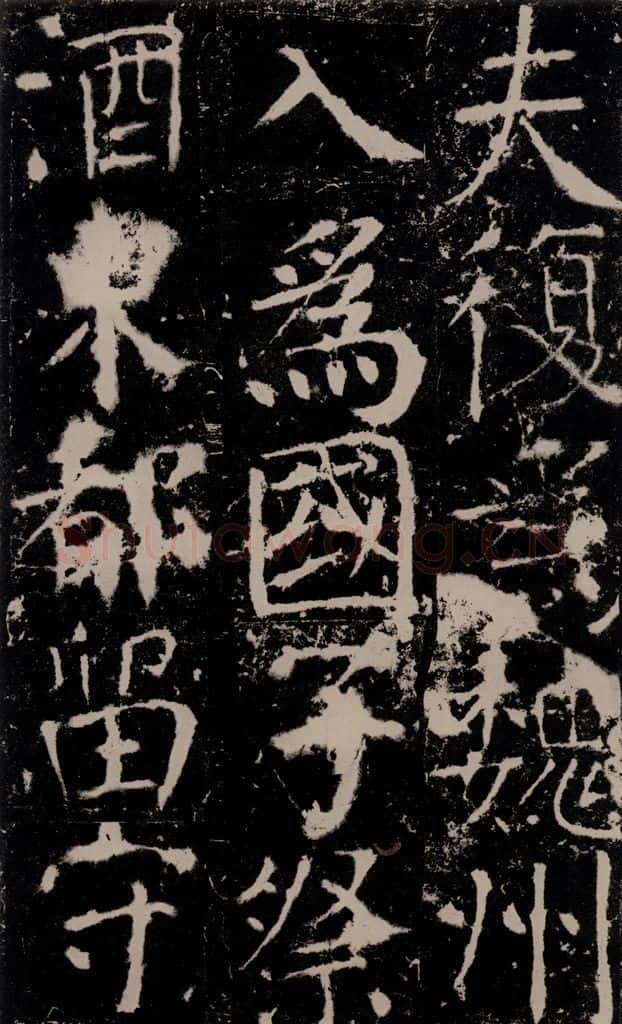 夫復魏州
入爲國子祭
酒東都留守
Shufawang.CN